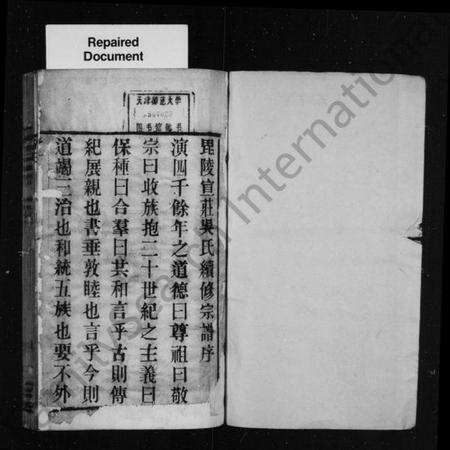 Repaired
Document
天津師範大學
圖書館藏書
毘陵宣莊吳氏續修宗譜序
演四千餘年之道德曰尊祖曰敬
宗曰收族抱二十世紀之主義曰
保種曰合羣曰共和言乎古則傳
紀展親也書垂敦睦也言乎今則
道謁二治也和統五族也要不外